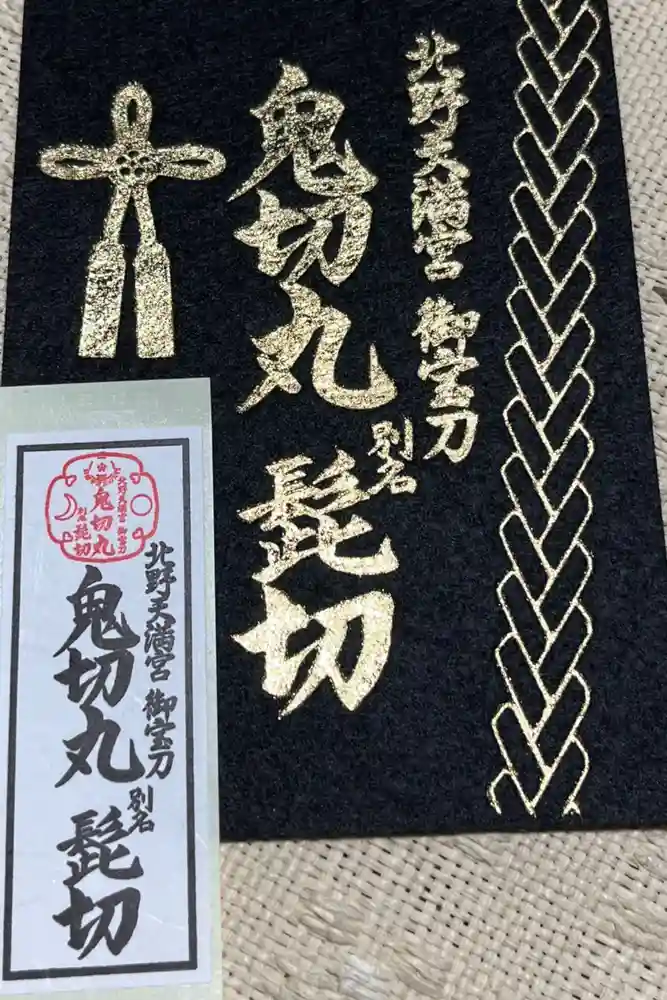 北野天満宮 御宝刀
鬼切丸 別名 髭切
北野天満宮 御宝刀
鬼切丸 別名 髭切
北野天満宮 御宝刀
鬼切丸
別名 髭切